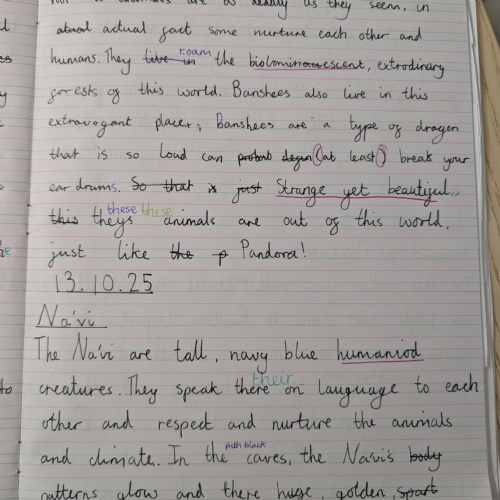 as they seem, in
actual actual fact some nurture each other and
humans. They live in roam the bioluminawescent, extrodinary
forests of this world. Banshees also live in this
extravogant places; Banshees are a type of dragen
that is so loud can probab degun (at least) break your
ear drums. So that is just Strange yet beautiful,,
this theys these these animals are out of this world,
just like the p Pandora!
13.10.25
Na'vi
The Na'vi are tall, navy blue humaniod
creatures. They speak there their on language to each
other and respect and nurture the animals
and climate. In the pitch black caves, the Na'vi's body
patterns glow and there huge, golden, spart